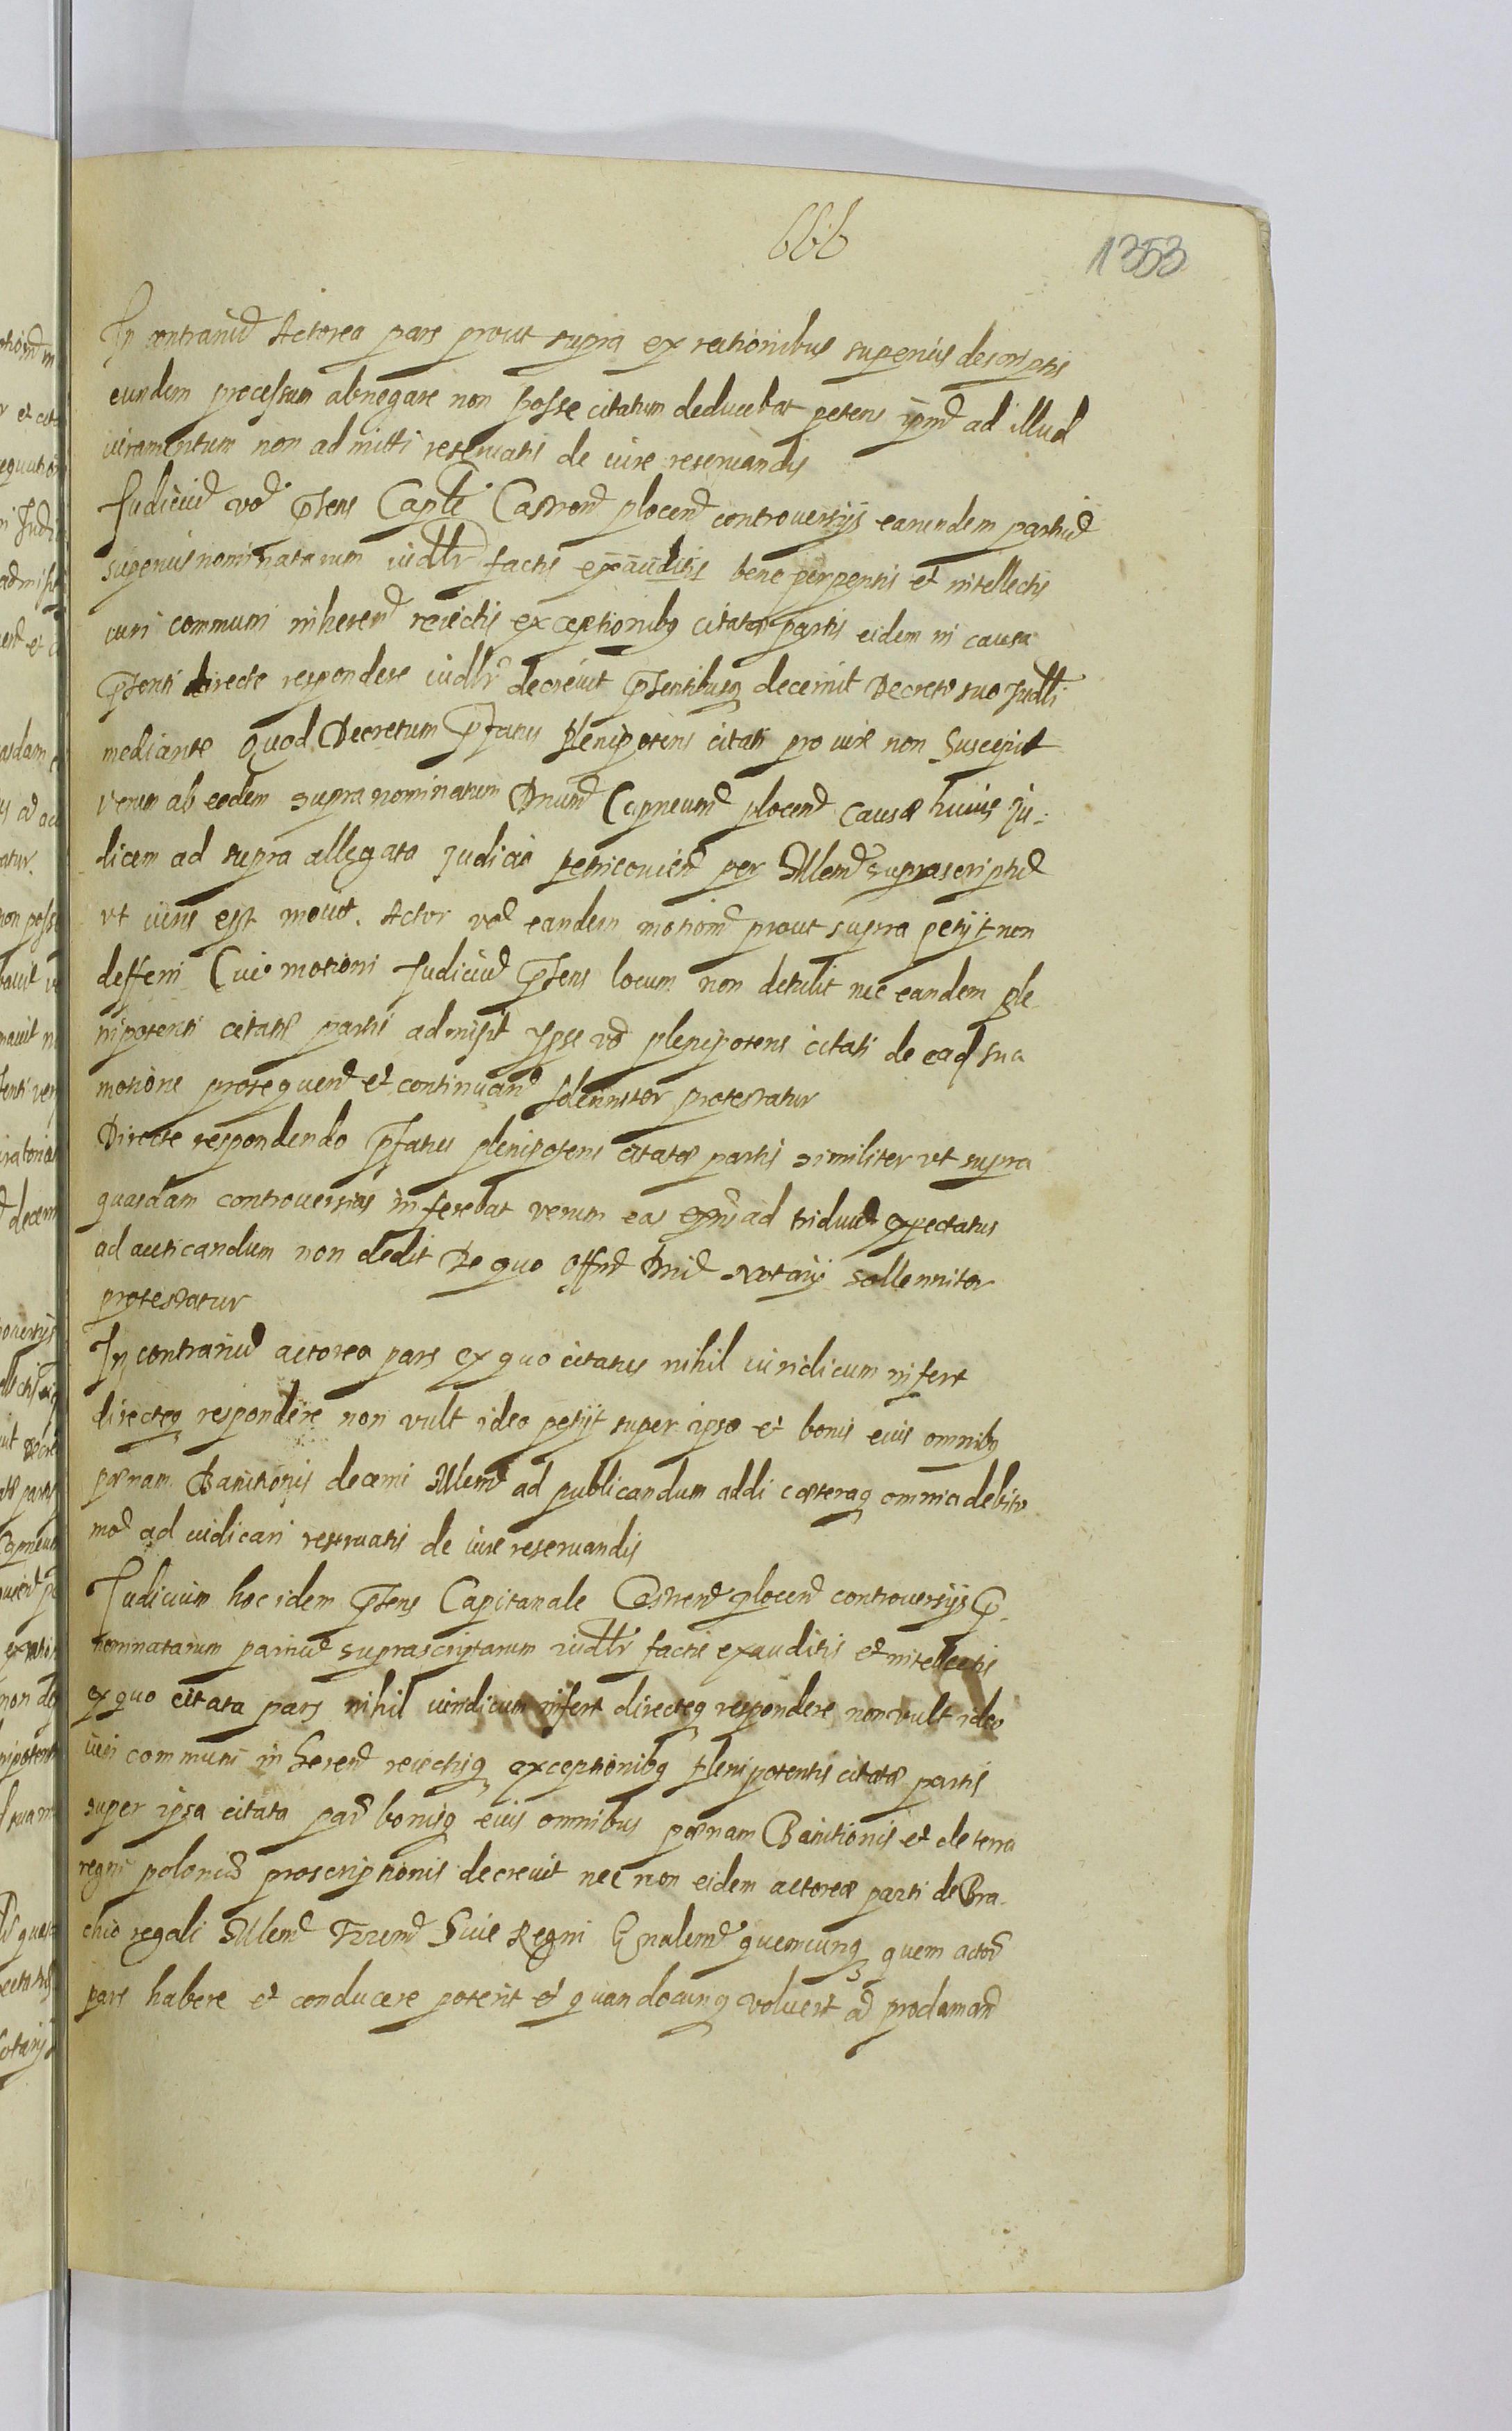 666
1353
In contrariu͂ Actorea pars prout supra ex rationibus superius descriptis
eundem processum abnegare non posse citatum deducebat petens ipm͂ ad illud
iuramentum non admitti reservatis de iure reservandis
Judiciu͂ vo͂ p͂sens Capłe Castren͂ plocen͂ controuersijs earundem partiu͂
superius nominatarum iudłr factis exauditis bene perpensis et intellectis
iuri communi inheren͂ reiectis exceptionibq citatæ partis eidem in causa
p͂senti directe respondere iudłr decreuit p͂sentibusq decernit Decreto suo Judłi
mediante Quod Decretum p͂fatus plenipotens citati pro iure non suscepit
verum ab eodem supra nominatum Dnum͂ Capneum͂ plocen͂ causæ huius Ju-
dicem ad supra allegata Judicia petricouien͂ per Mlem͂ suprascriptu͂
vt iuris est mouit. Actor vo͂ eandem motiom͂ prout supra petijt non
defferri Cui motioni Judiciu͂ p͂sens locum non detulit nec eandem ple
nipotenti citatæ partis admisit ipse vo͂ plenipotens citati de ead sua
motione prosequen͂ et continuan͂ solenniter protestatur
Directe respondendo p͂fatus plenipotens citatæ partis similiter vt supra
quasdam controuersias inferebat verum eas ad triduu͂ expectatus
ad acticandum non dedit De quo Offm͂ Dni͂ Notarij sollenniter
protestatur
In contrariu͂ actorea pars ex quo citatus nihil iuridicum infert
directeq respondere non vult ideo petijt super ipso et bonis eius omnibq
pœnam Banitionis decerni Mlem͂ ad publicandum addi cæteraq omnia debito
mo͂ adiudicari reservatis de iure reservandis
Judicium hoc idem p͂sens Capitanale Castren͂ plocen͂ controuersijs p͂-
nominatarum partiu͂ suprascriptarum iudłr factis exauditis et intellectis
ex quo citata pars nihil iuridicum infert directeq respondere non vult ideo
iuri communi inheren͂ reiectisq exceptionibq plenipotentis citatæ partis
super ipsa citata par͂ bonisq eius omnibus pœnam Banitionis et de terra
regni poloniæ proscriptionis decreuit nec non eidem actoreæ parti de Bra-
chio regali Mlem͂ Trrem͂ siue Regni G͂nalem͂ quemcunq quem actor͂
pars habere et conducere poterit et quandocunq voluerit ad proclaman͂